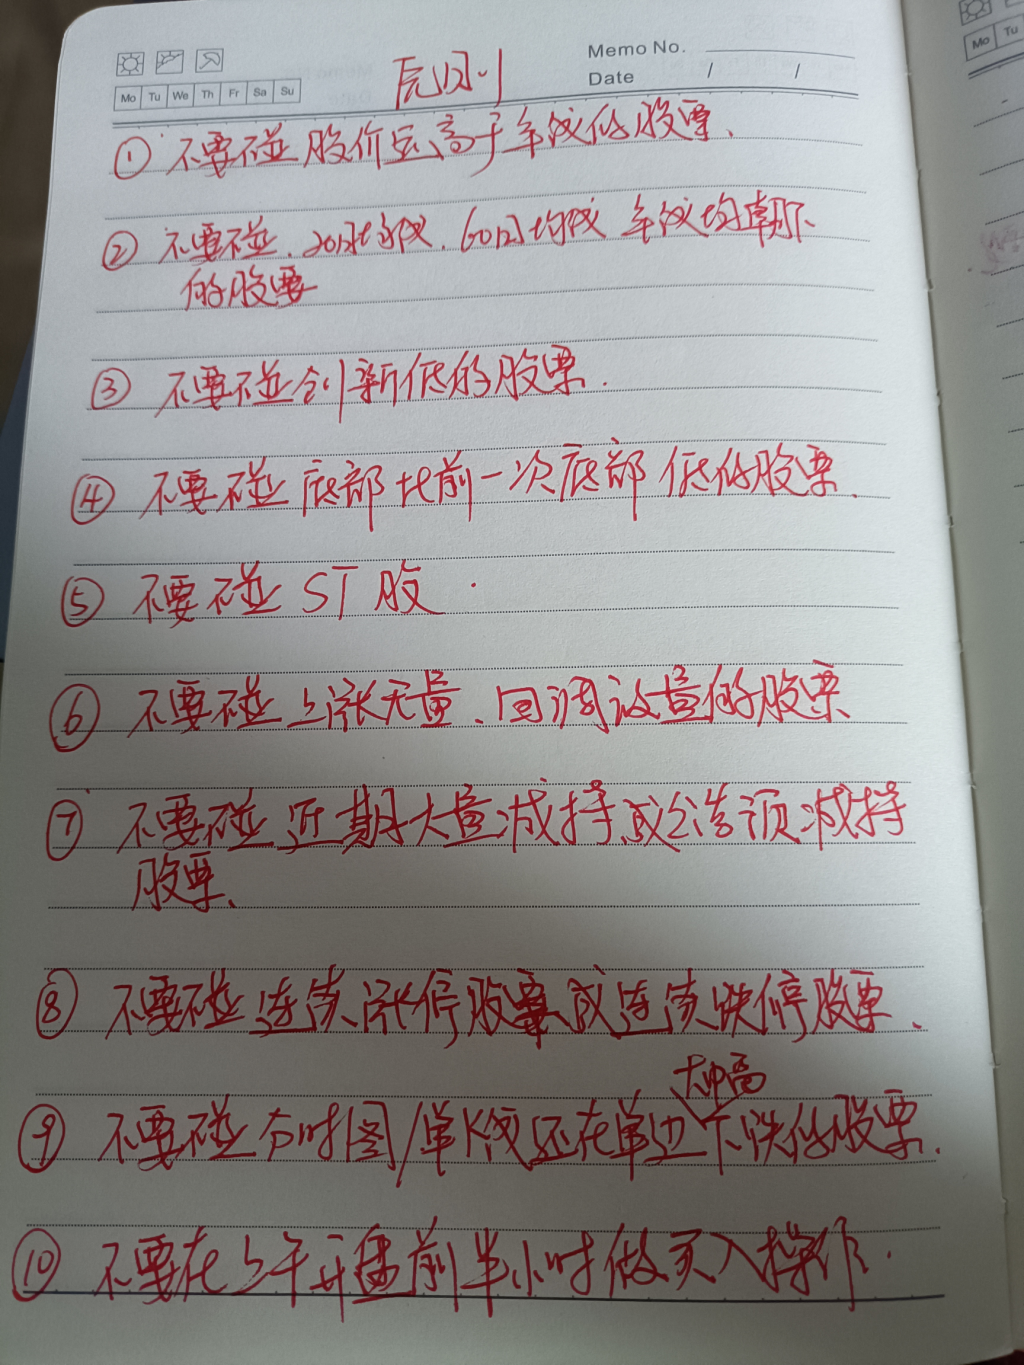 Memo No.
Mo Tu We Th Fr Sa Su
Date / /
原则
① 不要碰股价远高于年线的股票、
② 不要碰、20日均线、60日均线 年线均朝下
的股票
③ 不要碰创新低的股票.
④ 不要碰 底部比前一次底部 低的股票.
⑤ 不要碰 ST 股.
⑥ 不要碰上涨无量、回调放量的股票
⑦ 不要碰近期大量减持或公告预减持
股票、
⑧ 不要碰连续涨停股票或连续跌停股票、
大冲高
⑨ 不要碰分时图/单K线还在单边下跌的股票.
⑩ 不要在上午开盘前半小时做买入操作.
Mo Tu